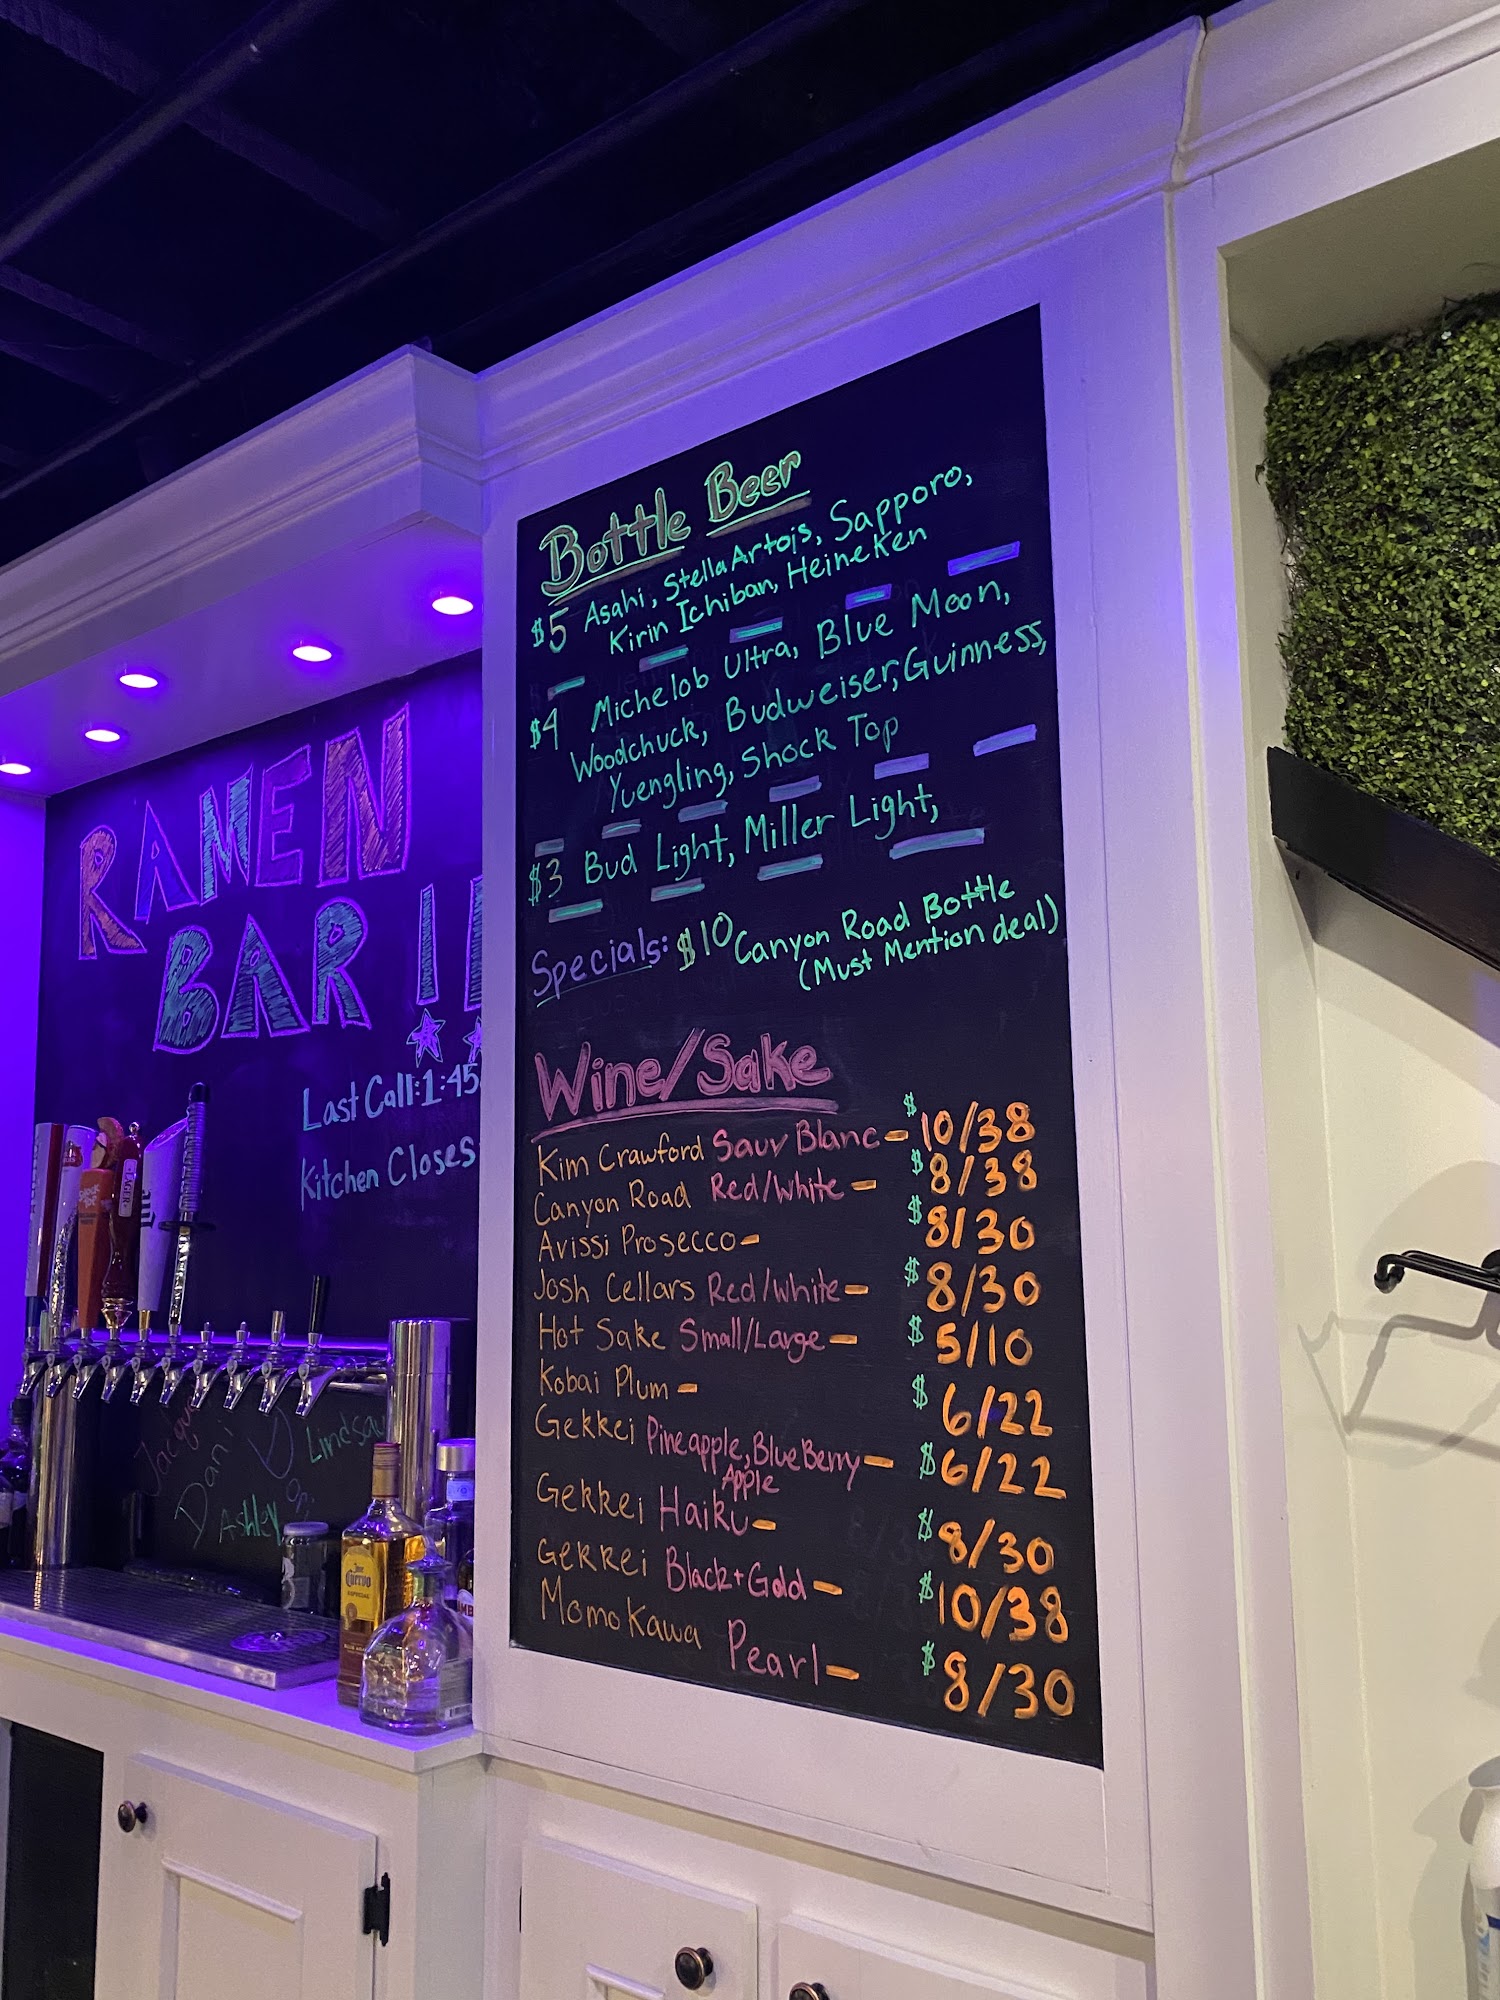 RAMEN
BAR!!
Last Call: 1:45
Kitchen Closes
Bottle Beer
$5 Asahi, Stella Artois, Sapporo,
Kirin Ichiban, HeineKen
$4 Michelob Ultra, Blue Moon,
Woodchuck, Budweiser, Guinness,
Yuengling, Shock Top
$3 Bud Light, Miller Light,
Specials: $10 Canyon Road Bottle
(Must Mention deal)
Wine/Sake
Kim Crawford Sauv Blanc - $10/38
Canyon Road Red/White - $8/38
Avissi Prosecco - $8/30
Josh Cellars Red/White - $8/30
Hot Sake Small/Large - $5/10
Kobai Plum - $6/22
Gekkei Pineapple, BlueBerry - $6/22
Apple
Gekkei Haiku - $8/30
Gekkei Black + Gold - $10/38
Momo Kawa Pearl - $8/30
Dani
Lindsay
Ashley
Jose
Cuervo
ESPECIAL